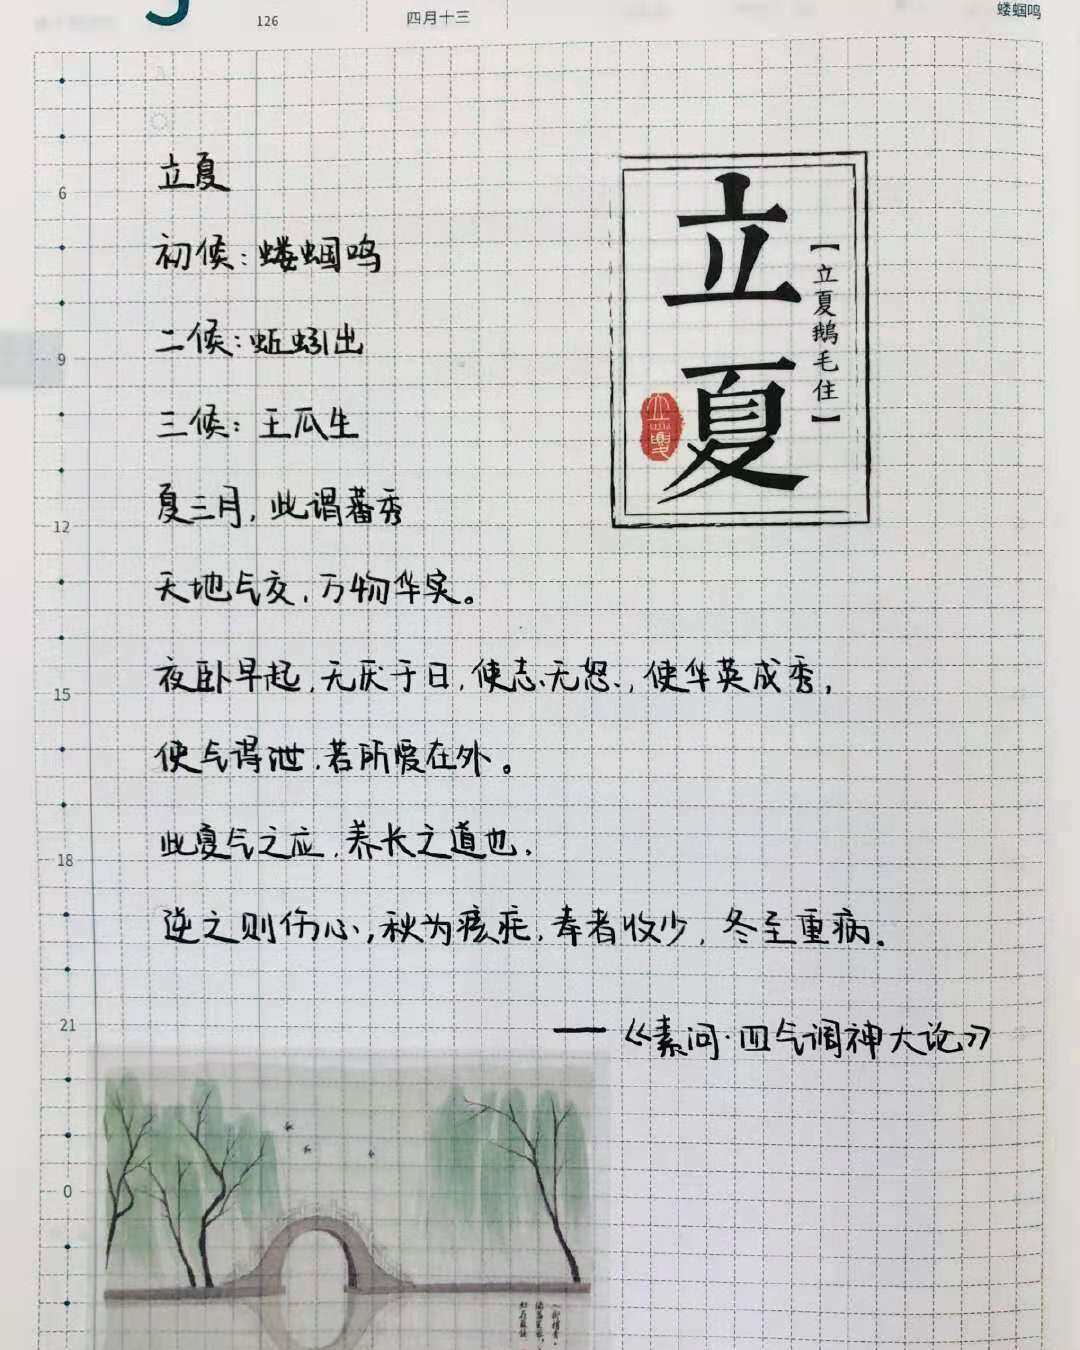 126
四月十三
蝼蝈鸣
立夏
初候:蝼蝈鸣
二候:蚯蚓出
三候:王瓜生
夏三月,此谓蕃秀
天地气交,万物华实。
夜卧早起,无厌于日,使志无怒,使华英成秀,
使气得泄,若所爱在外。
此夏气之应,养长之道也.
逆之则伤心,秋为痎疟,奉者收少,冬至重病.
——《素问·四气调神大论》
立夏
【立夏鹅毛住】
立夏
6
9
12
15
18
21
0